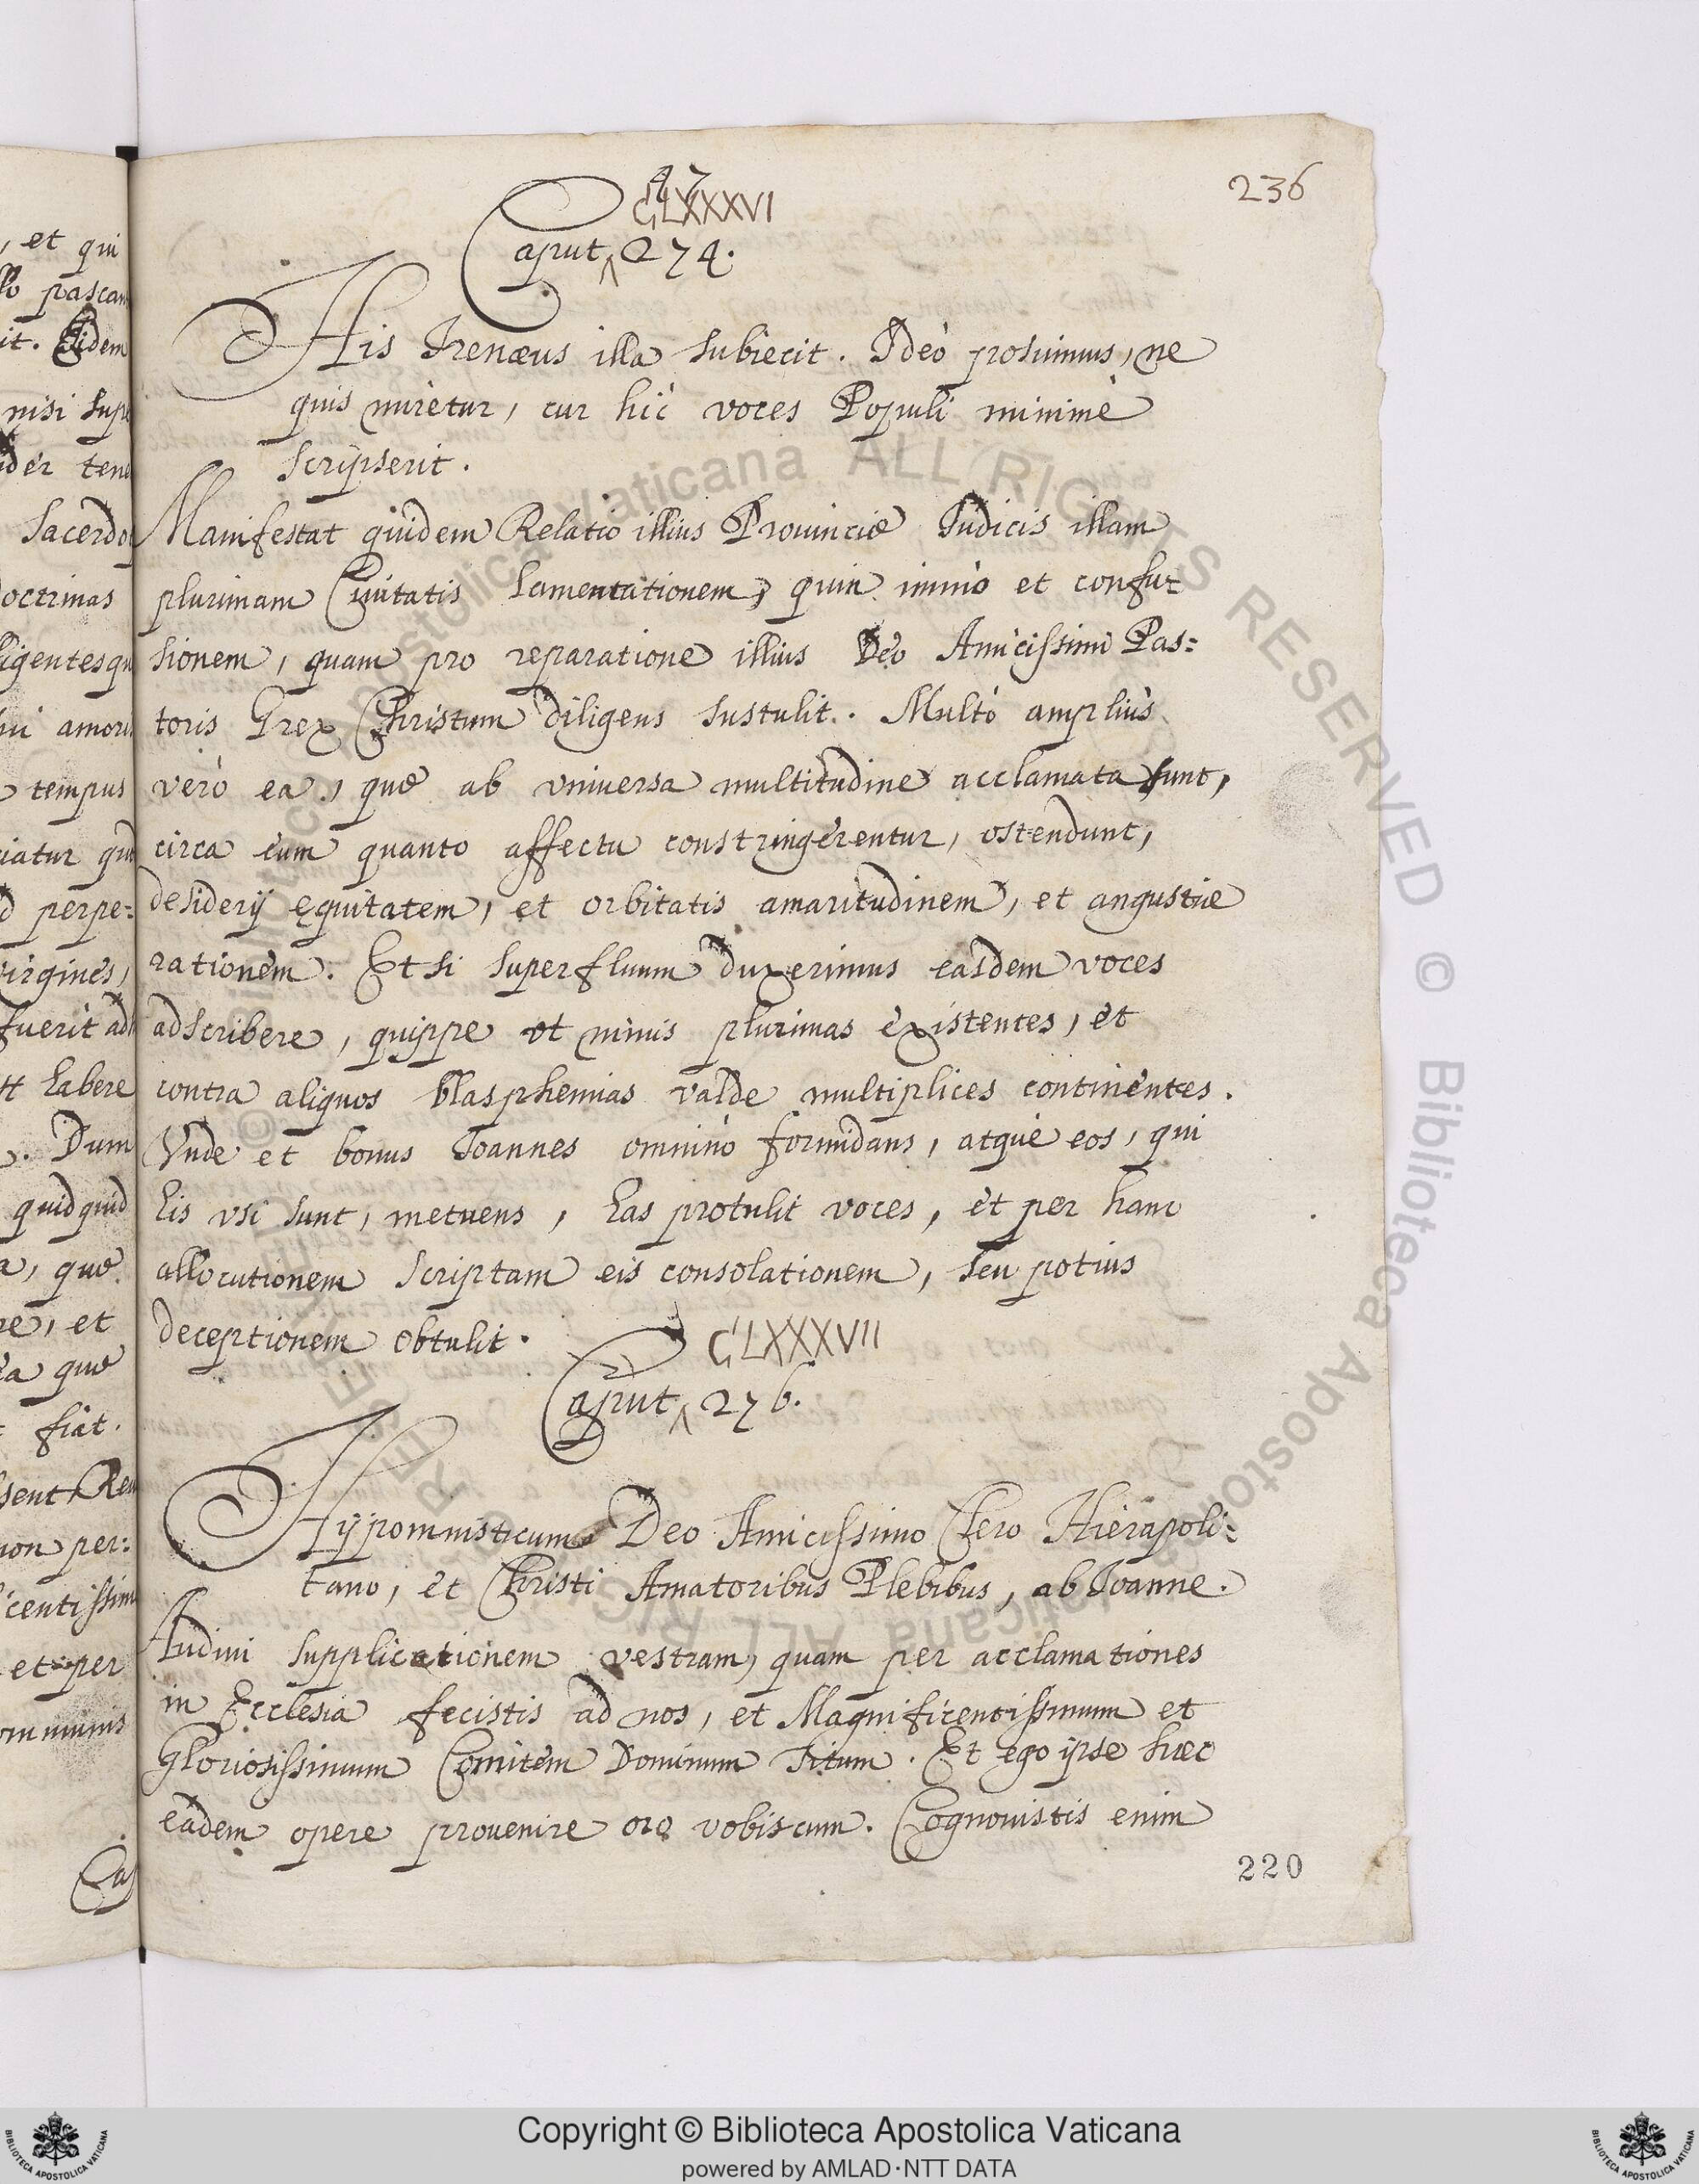 236
CLXXXVI
Caput 274.
His Irenæus illa subiecit. Ideò posuimus, ne
quis miretur, cur hìc voces Populi minimè
scripserit.
Manifestat quidem Relatio illius Prouincię Iudicis illam
plurimam Ciuitatis lamentationem, quin immò et confu-
sionem, quam pro reparatione illius Deo Amicissimi Pas=
toris Grex Christum diligens sustulit. Multò ampliùs
verò ea, quę ab vniuersa multitudine acclamata sunt,
circa eum quanto affectu constringerentur, ostendunt,
desiderij ęquitatem, et orbitatis amaritudinem, et angustię
rationem. Et si superfluum duxerimus easdem voces
adscribere, quippe vt nimis plurimas existentes, et
contra aliquos blasphemias valde multiplices continentes.
Vnde et bonus Ioannes omninò formidans, atque eos, qui
his vsi sunt, metuens, has protulit voces, et per hanc
allocutionem scriptam eis consolationem, seu potius
deceptionem obtulit.
CLXXXVII
Caput 276.
Hypomnisticum Deo Amicissimo Clero Hierapoli=
tano, et Christi Amatoribus Plebibus, ab Ioanne.
Audiui supplicationem vestram, quam per acclamationes
in Ecclesia fecistis ad nos, et Magnificentissimum et
Gloriosissimum Comitem Dominum Titum. Et ego ipse hæc
eadem opere prouenire oro vobiscum. Cognouistis enim
220
, et qui
pascan
it. Eidem
nisi supe
tene
sacerdo
octrinas
ligentesqu
amoris
tempus
iatur qu
perpe=
virgines,
fuerit ad
habere
. Dum
quidquid
a, quę
re, et
ea quę
fiat.
sent, Reu
non per=
centissim
et per
Copyright © Biblioteca Apostolica Vaticana
powered by AMLAD·NTT DATA
© Biblioteca Apostolica Vaticana ALL RIGHTS RESERVED © Biblioteca Apostolica Vaticana ALL RIGHTS RESERVED
BIBLIOTECA APOSTOLICA VATICANA
BIBLIOTECA APOSTOLICA VATICANA